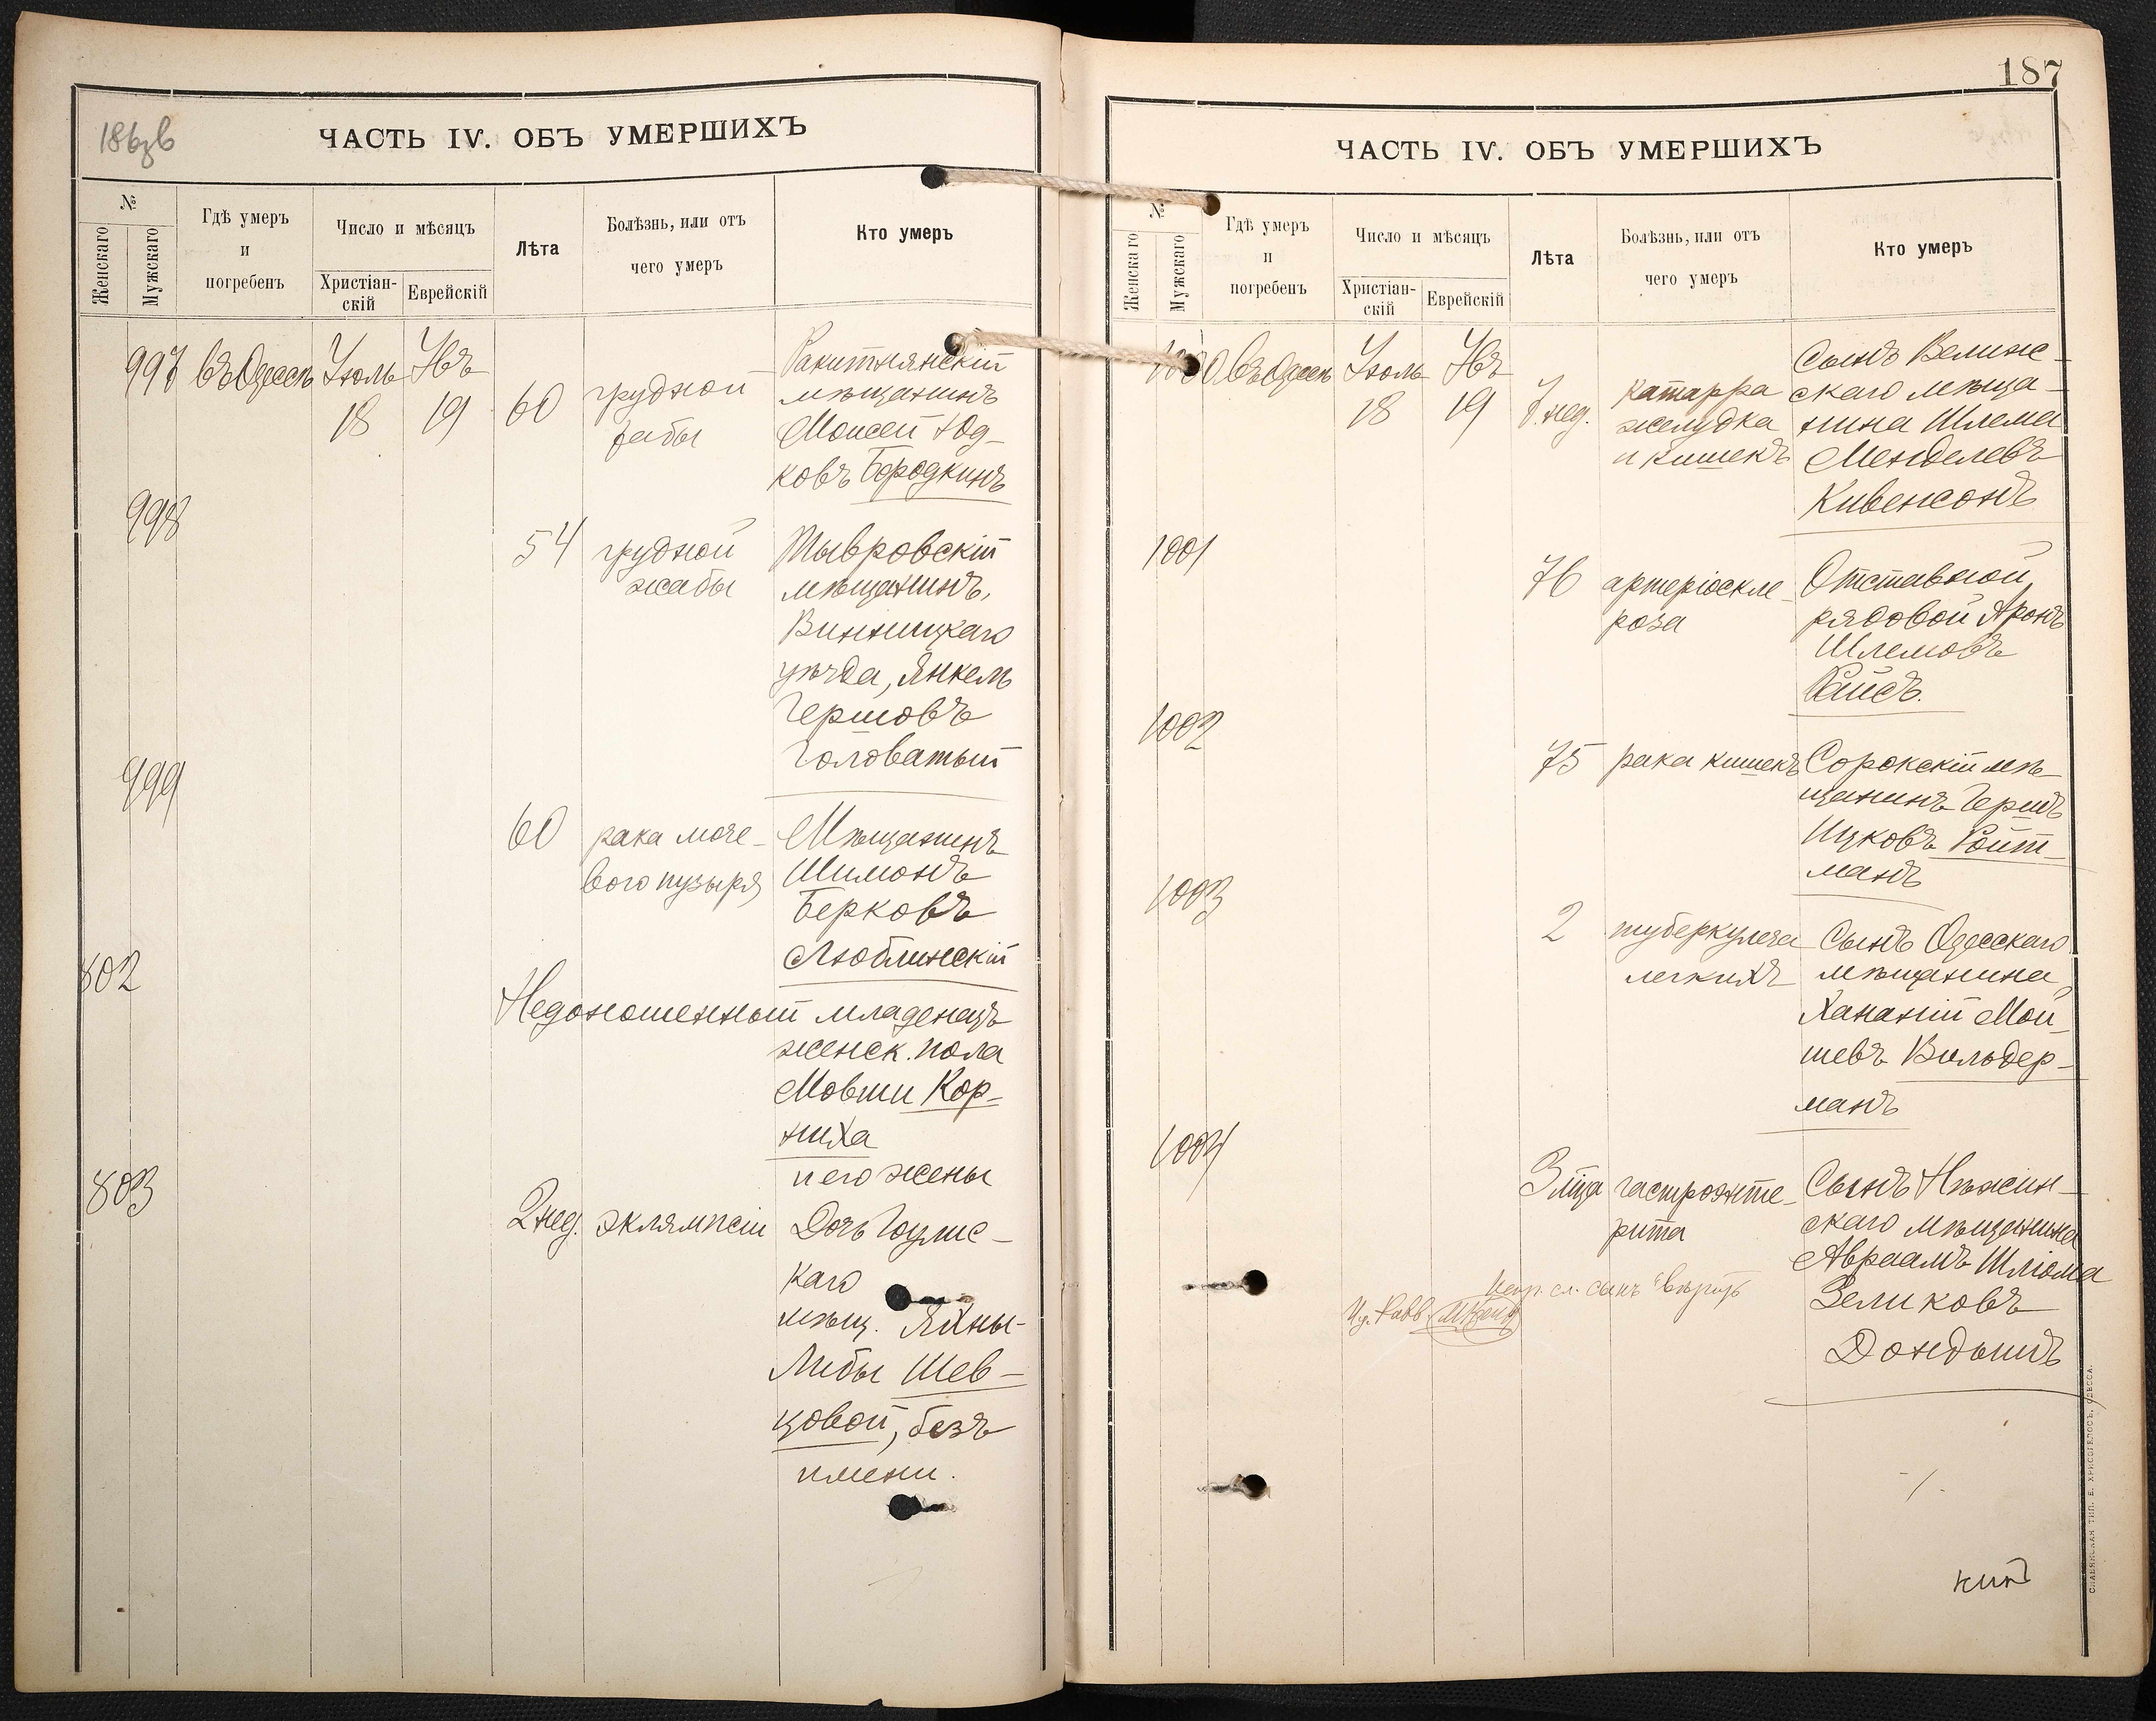 186зв
ЧАСТЬ IV. ОБЪ УМЕРШИХЪ
№
Женскаго
Мужскаго
Гдѣ умеръ
и
погребенъ
Число и мѣсяцъ
Христіан-
скій
Еврейскій
Лѣта
Болѣзнь, или отъ
чего умеръ
Кто умеръ
997 въ Одессѣ Іюль 18 Авъ 19 60
грудной
жабы
Ракитнянскій
мѣщанинъ
Моисей Юд-
ковъ Бородкинъ
998
54
грудной
жабы
Тывровскій
мѣщанинъ,
Винницкаго
уѣзда, Янкель
Гершовъ
Головатый
999
60
рака моче-
вого пузыря
Мѣщанинъ
Шимонъ
Берковъ
Люблинскій
802
Недоношенный младенецъ
женск. пола
Мовши Кор-
ниха
и его жены
803
2 нед.
эклямпсіи
Дочь
каго
мѣщ. Яхны-
Либы Шев-
цовой, безъ
имени.
187
ЧАСТЬ IV. ОБЪ УМЕРШИХЪ
№
Женскаго
Мужскаго
Гдѣ умеръ
и
погребенъ
Число и мѣсяцъ
Христіан-
скій
Еврейскій
Лѣта
Болѣзнь, или отъ
чего умеръ
Кто умеръ
1000 въ Одессѣ Іюль 18 Авъ 19 7 нед.
катарра
желудка
и кишекъ
Сынъ Велиж-
скаго мѣща-
нина Шлема
Менделевъ
Кивенсонъ
1001
76
артеріоскле-
роза
Отставной
рядовой Аронъ
Шлемовъ
Райсъ.
1002
75
рака кишекъ
Сорокскій мѣ-
щанинъ Гершъ
Ицковъ Ройт-
манъ
1003
2
туберкулеза
легкихъ
Сынъ Одесскаго
мѣщанина
Хананій Мой-
шевъ Вильдер-
манъ
1004
3 мца
гастроэнте-
рита
Сынъ Нѣжин-
скаго мѣщанина
Авраамъ Шлiома
Зеликовъ
Дондышъ
сл. сынъ вѣрить
Равв.
СЛАВЯНСКАЯ ТИП. Е. ХРИСОГЕЛОСЪ, ОДЕССА.